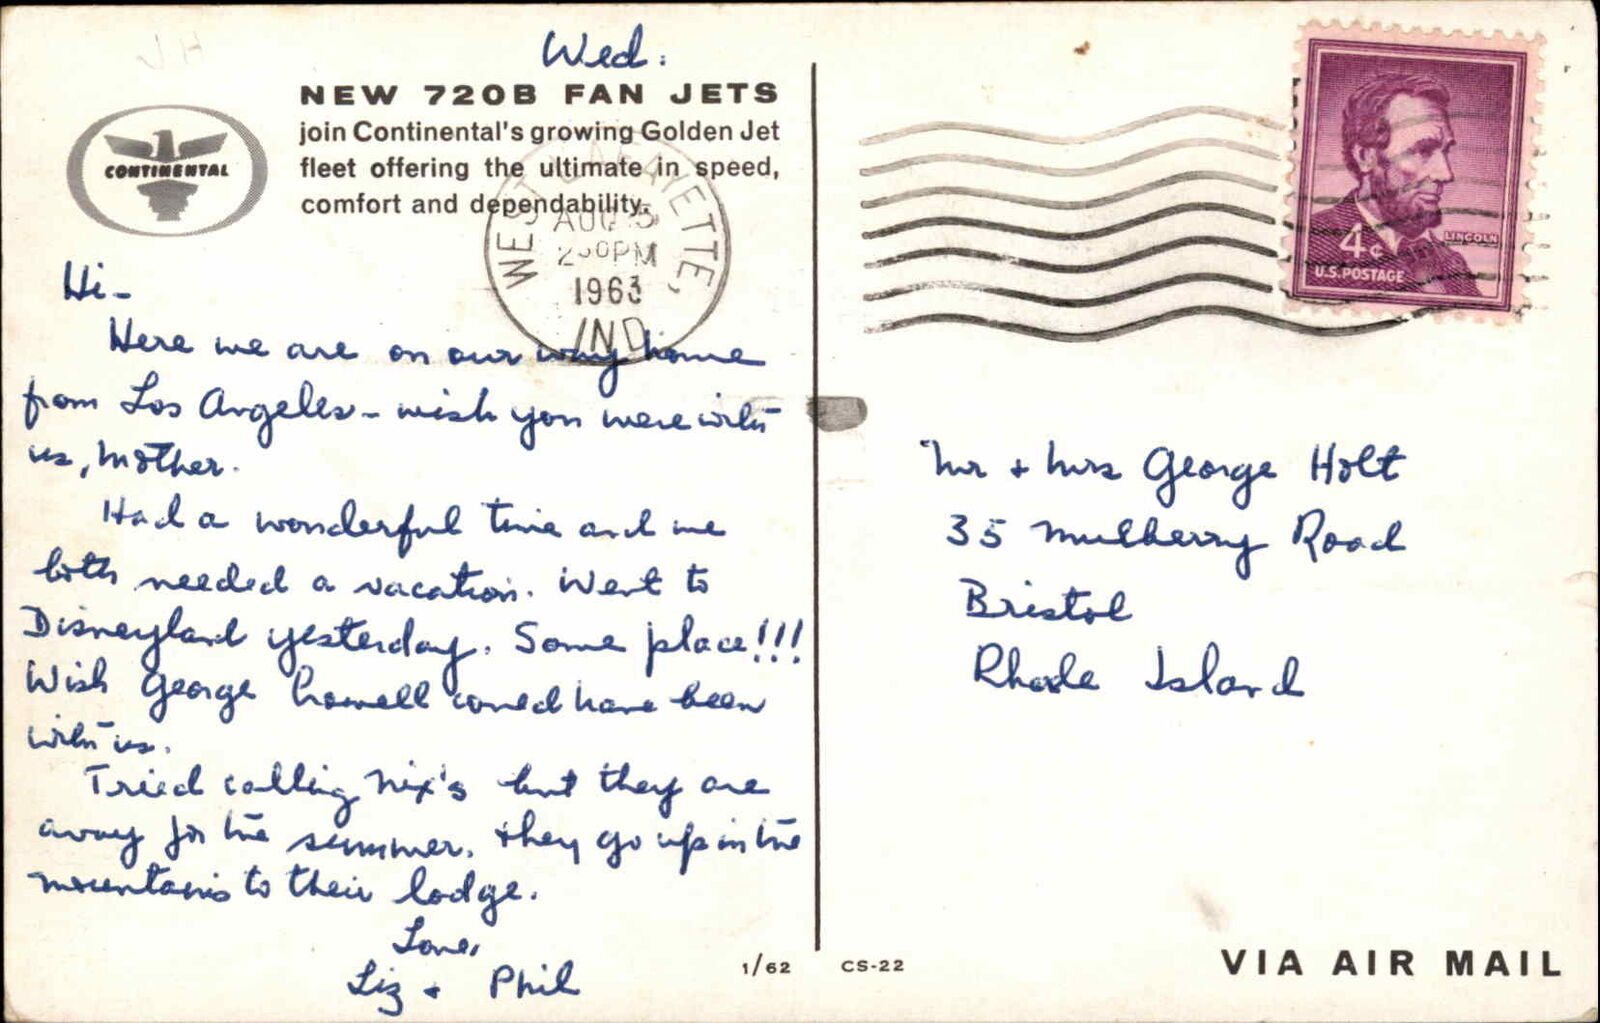 Wed.
NEW 720B FAN JETS
join Continental's growing Golden Jet
fleet offering the ultimate in speed,
comfort and dependability.
CONTINENTAL
WEST LAFAYETTE,
AUG
PM
1963
IND.
Hi-
Here we are on our way home
from Los Angeles - wish you were with
us, Mother.
Had a wonderful time and we
both needed a vacation. Went to
Disneyland yesterday. Some place!!!
Wish George Howell could have been
with us.
Tried calling Nix's but they are
away for the summer. They go up in the
mountains to their lodge.
Love,
Liz + Phil
1/62 CS-22
4¢ LINCOLN
U.S. POSTAGE
Mr + Mrs George Holt
35 Mulberry Road
Bristol
Rhode Island
VIA AIR MAIL